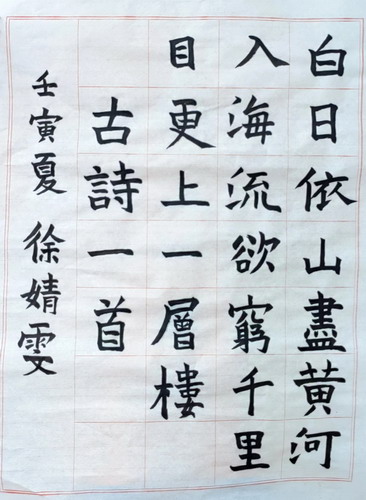 白日依山盡黃河
入海流欲窮千里
目更上一層樓
古詩一首
壬寅夏 徐婧雯